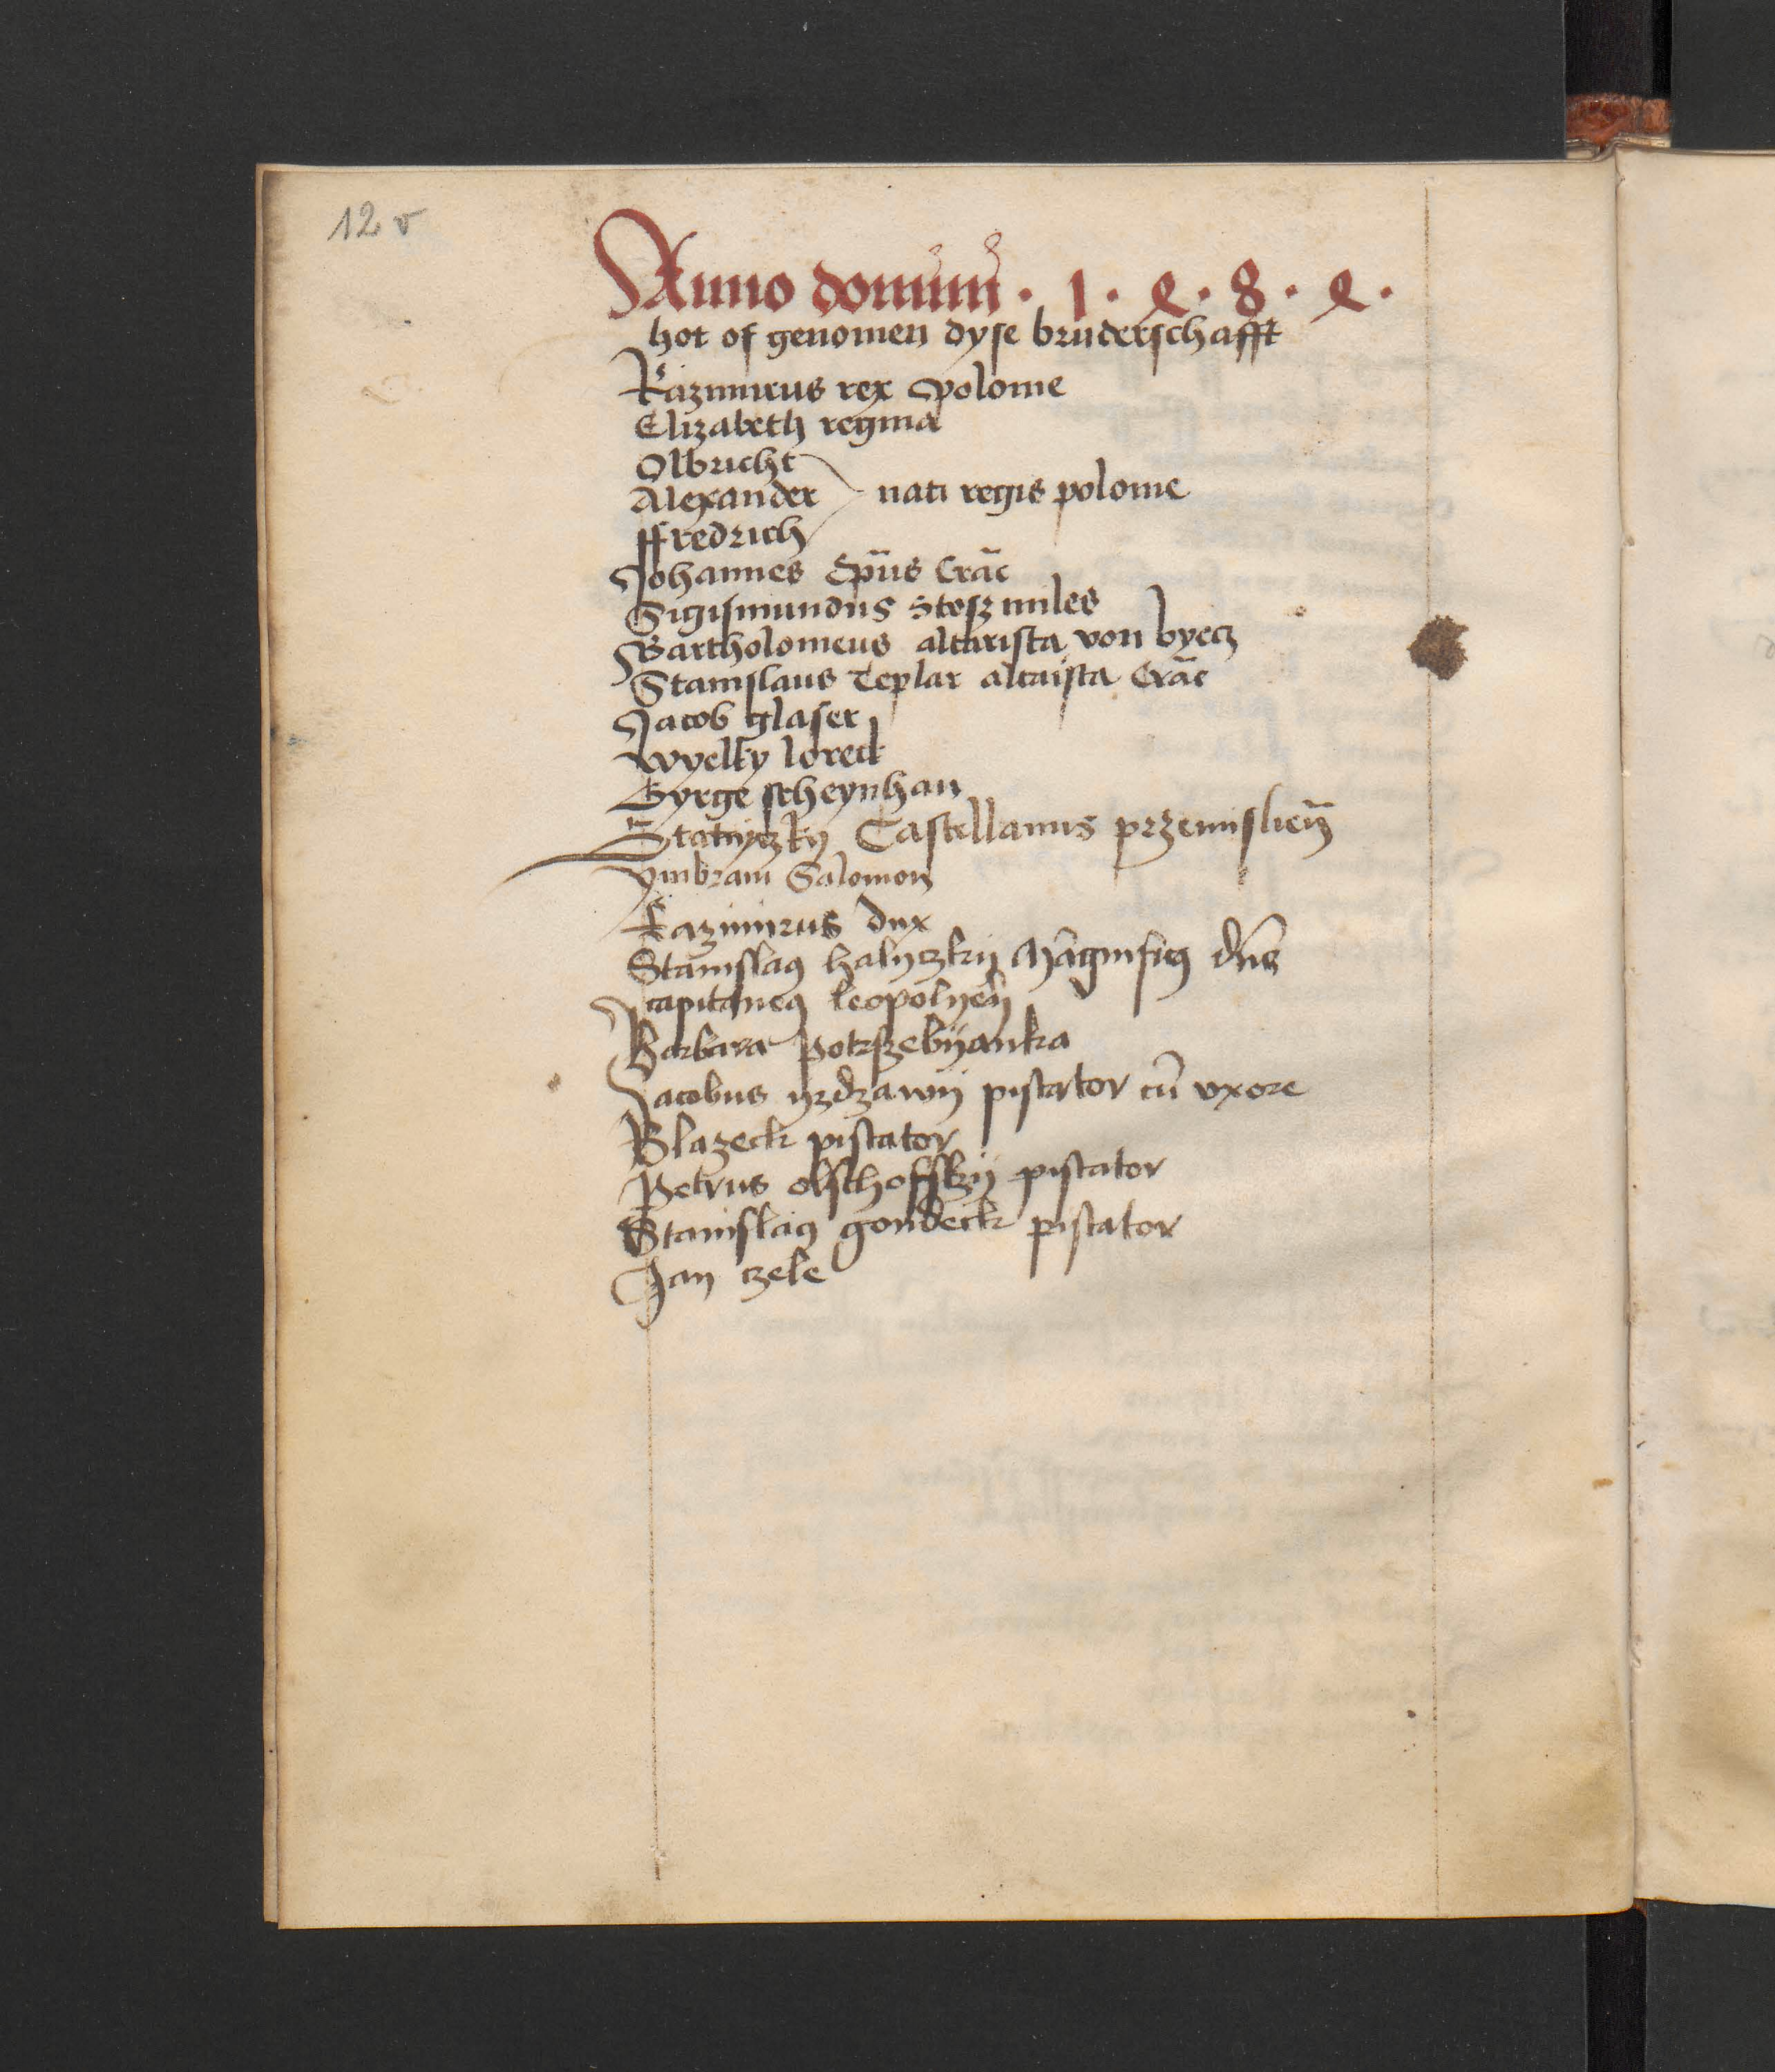 12 v
Anno domini · 1 · 4 · 8 · 4 ·
hot of genomen dyse bruderschafft
Kazimirus rex Polonie
Elizabeth regina
Olbricht
Alexander nati regis polonie
ffredrich
Johannes Ep̄us Crāc
Sigismundus Stosz miles
Bartholomeus altarista von byecz
Stanislaus Teplar altaista Crāc
Jacob glaser
wyelky loreck
Gyrge scheynhan
Castellanus przemislień
ymbram Salomon
Kazimirus dux
Stanislaꝰ halyczkij Magnificꝰ dn̄s
capitaneꝰ leopolyeñ
Barbara Potrszebijanka
Jacobus yzdzawij piscator cū vxore
Blazeck piscator
Petrus olschoffskij piscator
Stanislaꝰ gondeck piscator
Jan czele